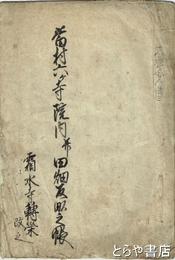 當村六ヶ寺院内并田畑反別之帳
霜水寺轉栄
改之
とらや書店